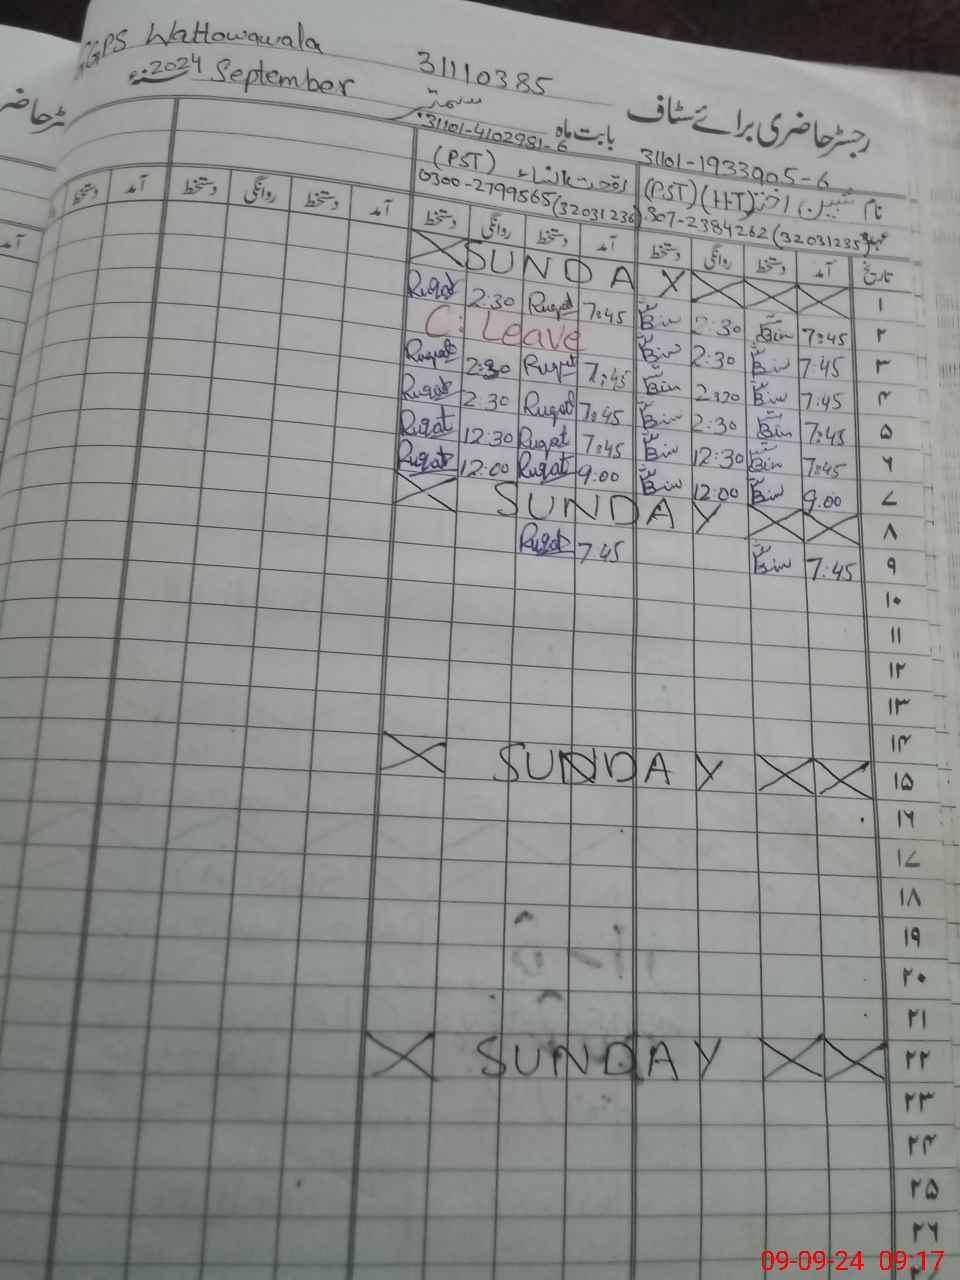 GGPS Wattowawala
31110385
2024 September
رجسٹر حاضری برائے سٹاف
بابت ماہ
31101-4102981-6
31101-1933905-6
(PST)
نام اختر (PST) (H-T)
0300-2799565 (32031236)
307-2384262 (32031235)
تاریخ آمد دستخط روانگی دستخط آمد دستخط روانگی دستخط آمد دستخط روانگی دستخط آمد دستخط
۱ SUNDAY
۲ 7:45 2:30 7:45 Ruqat 2:30 Ruqat
۳ 7:45 2:30 C: Leave
۴ 7:45 2:30 7:45 Ruqat 2:30 Ruqat
۵ 7:45 2:30 7:45 Ruqat 2:30 Ruqat
۶ 7:45 12:30 7:45 Ruqat 12:30 Ruqat
۷ 9:00 12:00 9:00 Ruqat 12:00 Ruqat
۸ SUNDAY
۹ 7:45 7:45 Ruqat
۱۰
۱۱
۱۲
۱۳
۱۴
۱۵ SUNDAY
۱۶
۱۷
۱۸
۱۹
۲۰
۲۱
۲۲ SUNDAY
۲۳
۲۴
۲۵
۲۶
09-09-24 09:17